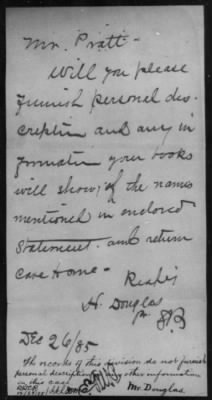 Mr. Pratt -
Will you please
furnish personal des
cription and any in
formation your books
will show, of the names
mentioned in enclosed
Statement. and return
Care Home -
H. Douglas
Dec 26/85
The records of this division do not furnish
personal description any other information
in this case
Mr. Douglas